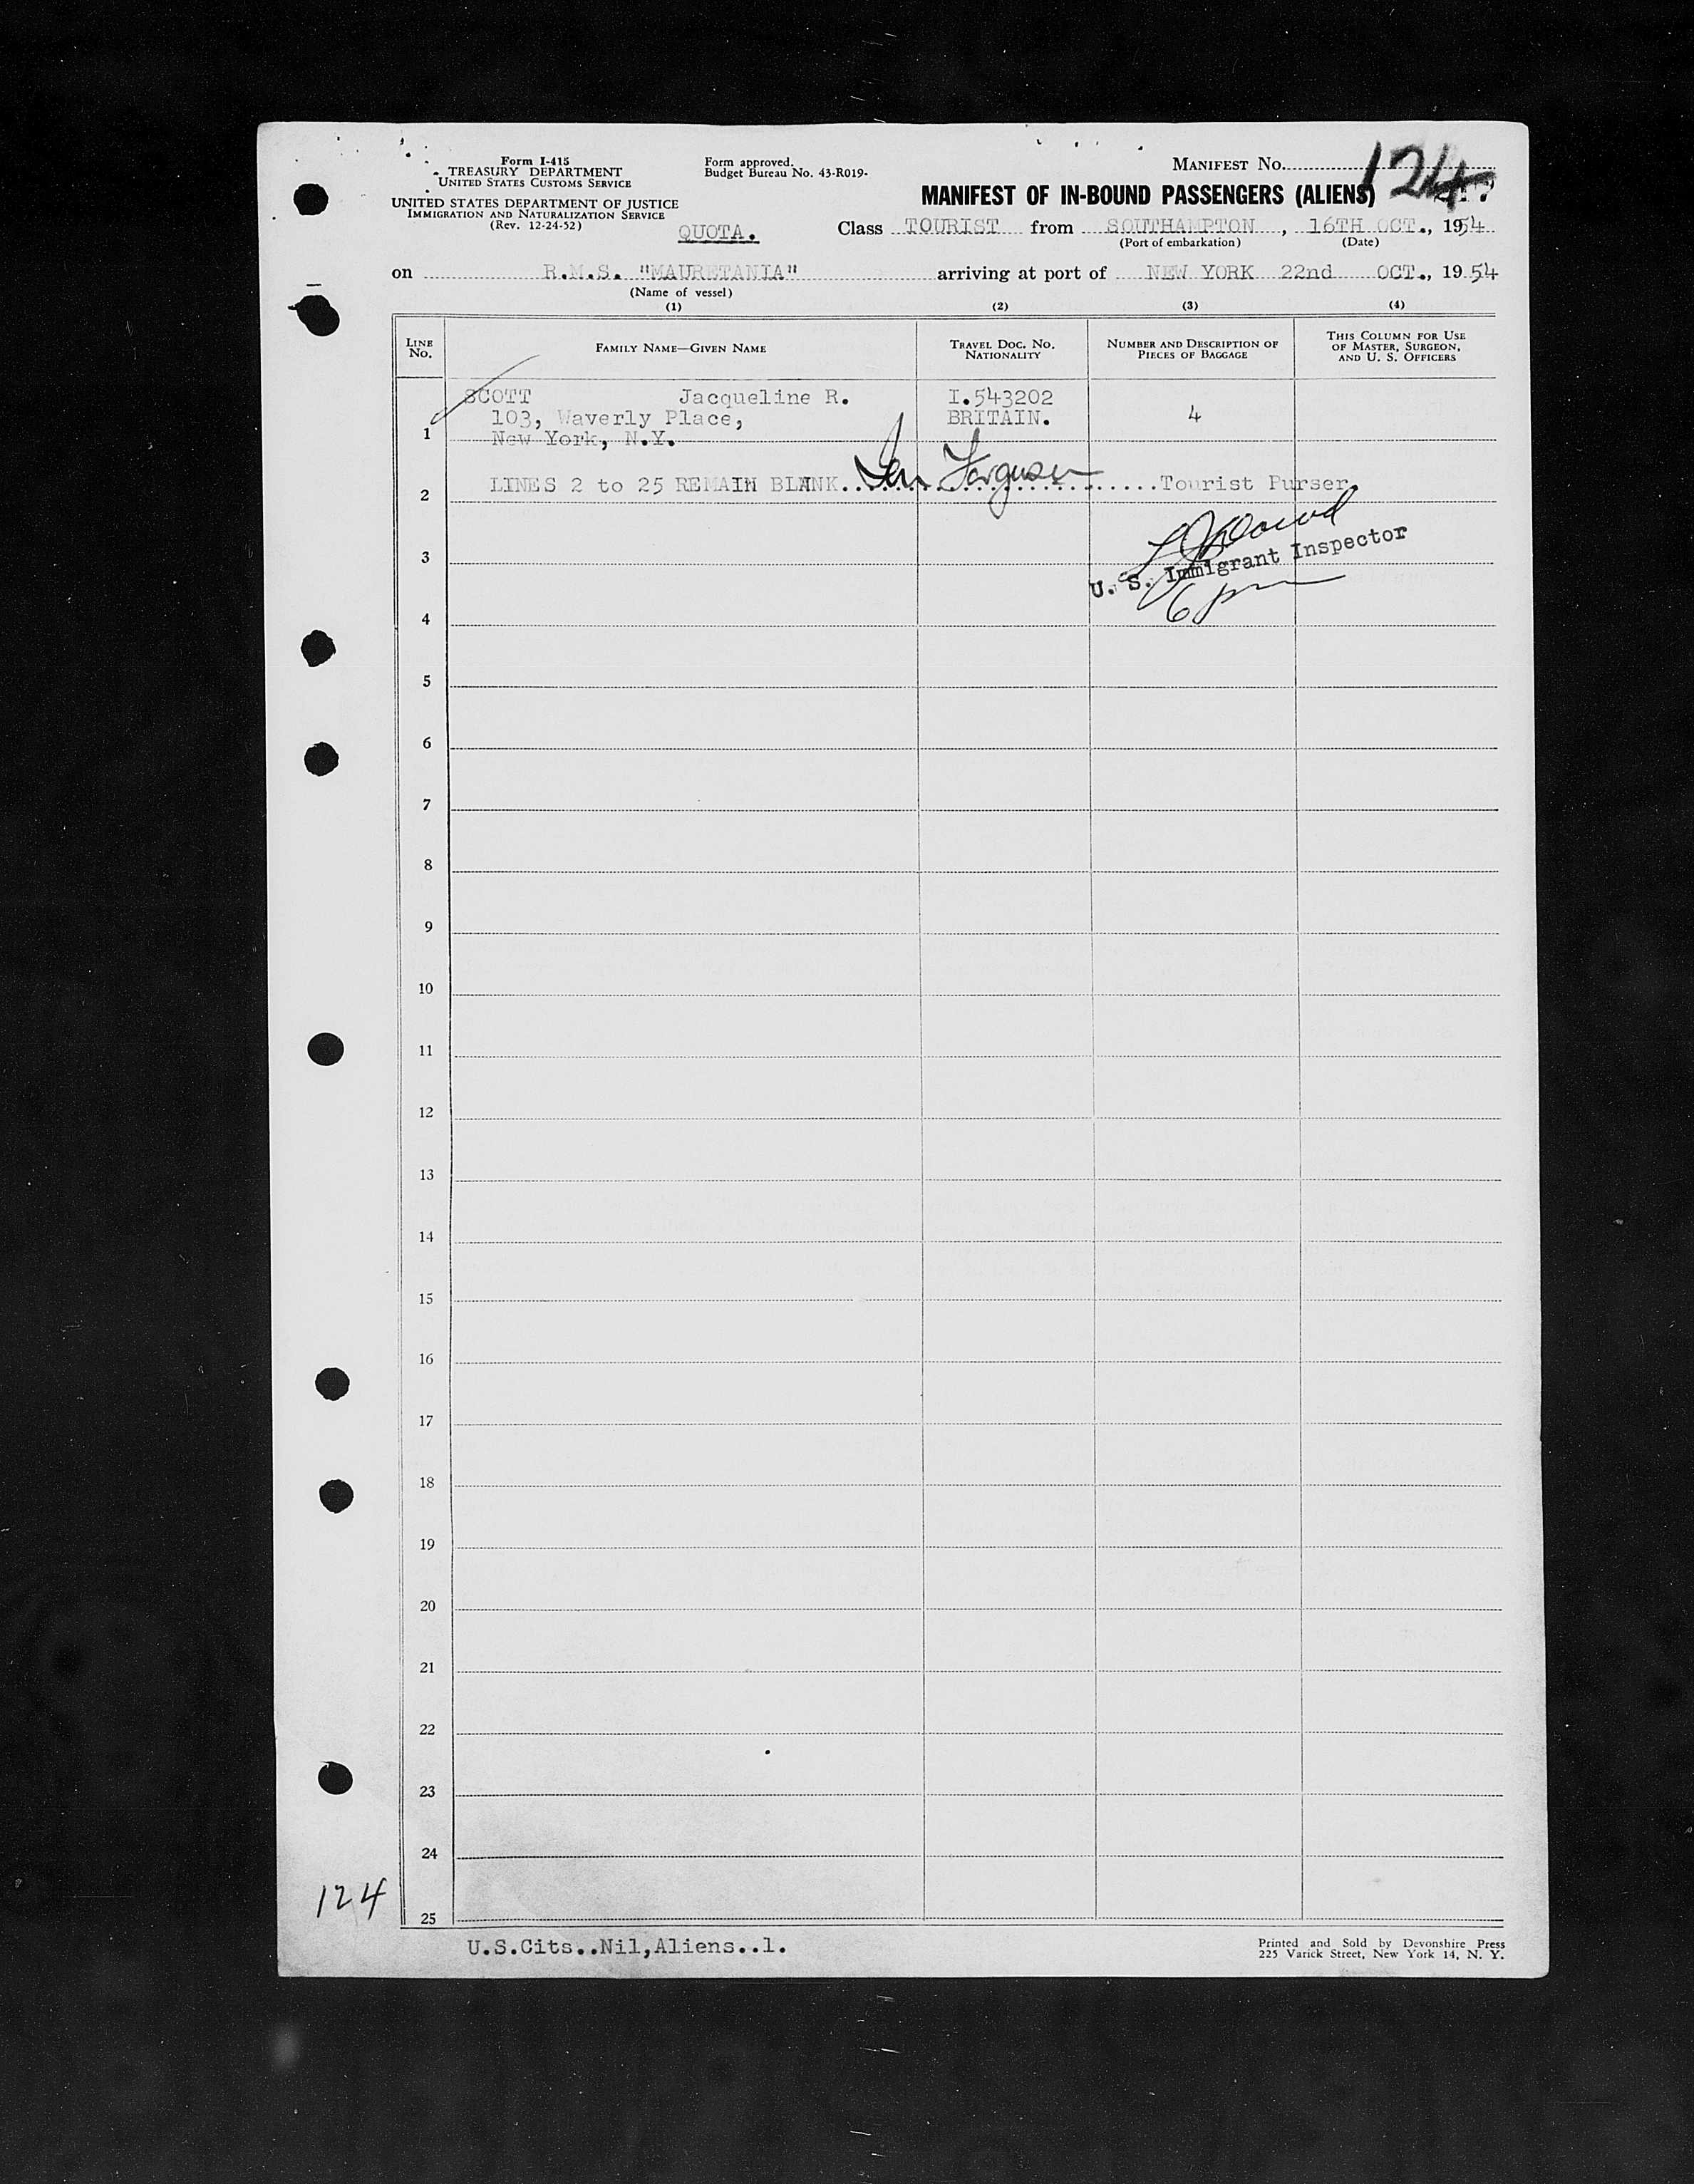 Form I-415
TREASURY DEPARTMENT
UNITED STATES CUSTOMS SERVICE
UNITED STATES DEPARTMENT OF JUSTICE
IMMIGRATION AND NATURALIZATION SERVICE
(Rev. 12-24-52)
Form approved.
Budget Bureau No. 43-R019-
MANIFEST No. 124
MANIFEST OF IN-BOUND PASSENGERS (ALIENS)
QUOTA. Class TOURIST from SOUTHAMPTON, 16TH OCT., 1954
(Port of embarkation) (Date)
on R.M.S. "MAURETANIA" arriving at port of NEW YORK 22nd OCT., 1954
(Name of vessel)
(1) (2) (3) (4)
LINE No. FAMILY NAME—GIVEN NAME TRAVEL DOC. NO. NATIONALITY NUMBER AND DESCRIPTION OF PIECES OF BAGGAGE THIS COLUMN FOR USE OF MASTER, SURGEON, AND U. S. OFFICERS
SCOTT Jacqueline R. I.543202
103, Waverly Place, BRITAIN. 4
1 New York, N.Y.
2 LINES 2 to 25 REMAIN BLANK. Ferguson Tourist Purser.
3
U. S. Immigrant Inspector
6 pm
4
5
6
7
8
9
10
11
12
13
14
15
16
17
18
19
20
21
22
23
24
124
25
U.S.Cits..Nil,Aliens..1.
Printed and Sold by Devonshire Press
225 Varick Street, New York 14, N. Y.